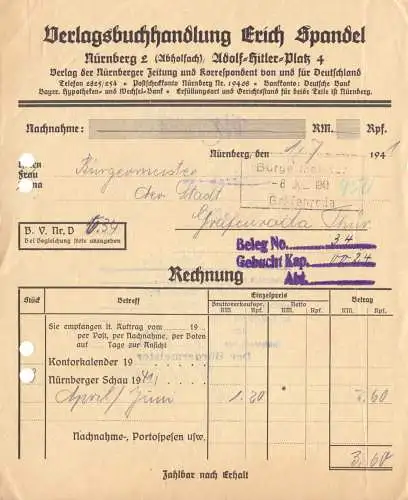 Verlagsbuchhandlung Erich Spandel
Nürnberg 2 (Abholfach) Adolf-Hitler-Platz 4
Verlag der Nürnberger Zeitung und Korrespondent von und für Deutschland
Telefon 2825/254 • Postscheckkonto Nürnberg Nr. 19408 • Bankkonto: Deutsche Bank
Bayer. Hypotheken- und Wechsel-Bank • Erfüllungsort und Gerichtsstand für beide Teile ist Nürnberg.
Nachnahme: RM. Rpf.
Nürnberg, den 1.7. 1941
Herren
Frau
Firma
Bürgermeister
der Stadt
Gräfenroda Thür
Bürgermeister
Gräfenroda
B. V. Nr. D 634
Bei Begleichung bitte anzugeben
Beleg No. 34
Gebucht Kap. 00-24
Abt.
Rechnung
Stück Betreff Einzelpreis Betrag
Bruttoverkaufspr. Netto
RM. Rpf. RM. Rpf. RM. Rpf.
Sie empfangen lt. Auftrag vom 19
per Post, per Nachnahme, per Boten
auf Tage zur Ansicht
Kontorkalender 19
Nürnberger Schau 1941
April/Juni 1.20 3.60
Nachnahme-, Portospesen usw.
3.60
Zahlbar nach Erhalt